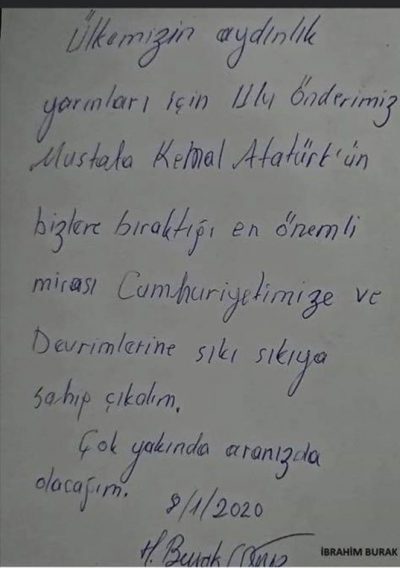 Ülkemizin aydınlık
yarınları için Ulu önderimiz
Mustafa Kemal Atatürk'ün
bizlere bıraktığı en önemli
mirası Cumhuriyetimize ve
Devrimlerine sıkı sıkıya
sahip çıkalım.
Çok yakında aranızda
olacağım.
8/1/2020
H. Burak
İBRAHİM BURAK